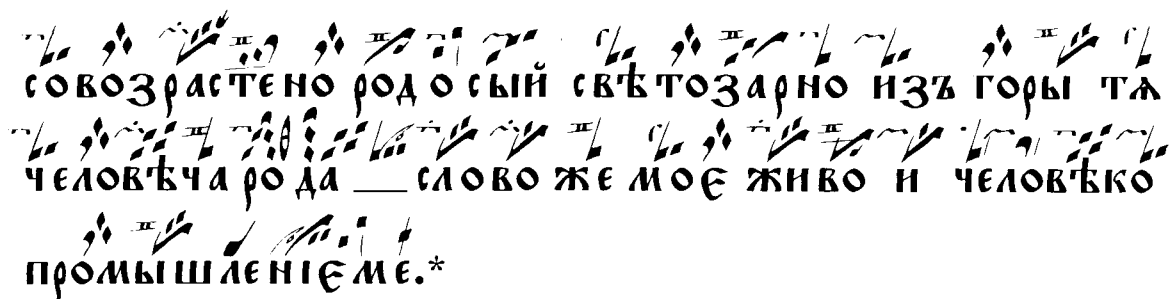 совозрастено родосый свѣтозарно изъ горы тѧ
человѣча рода __ слово же мое живо и человѣко
промышленіеме.*